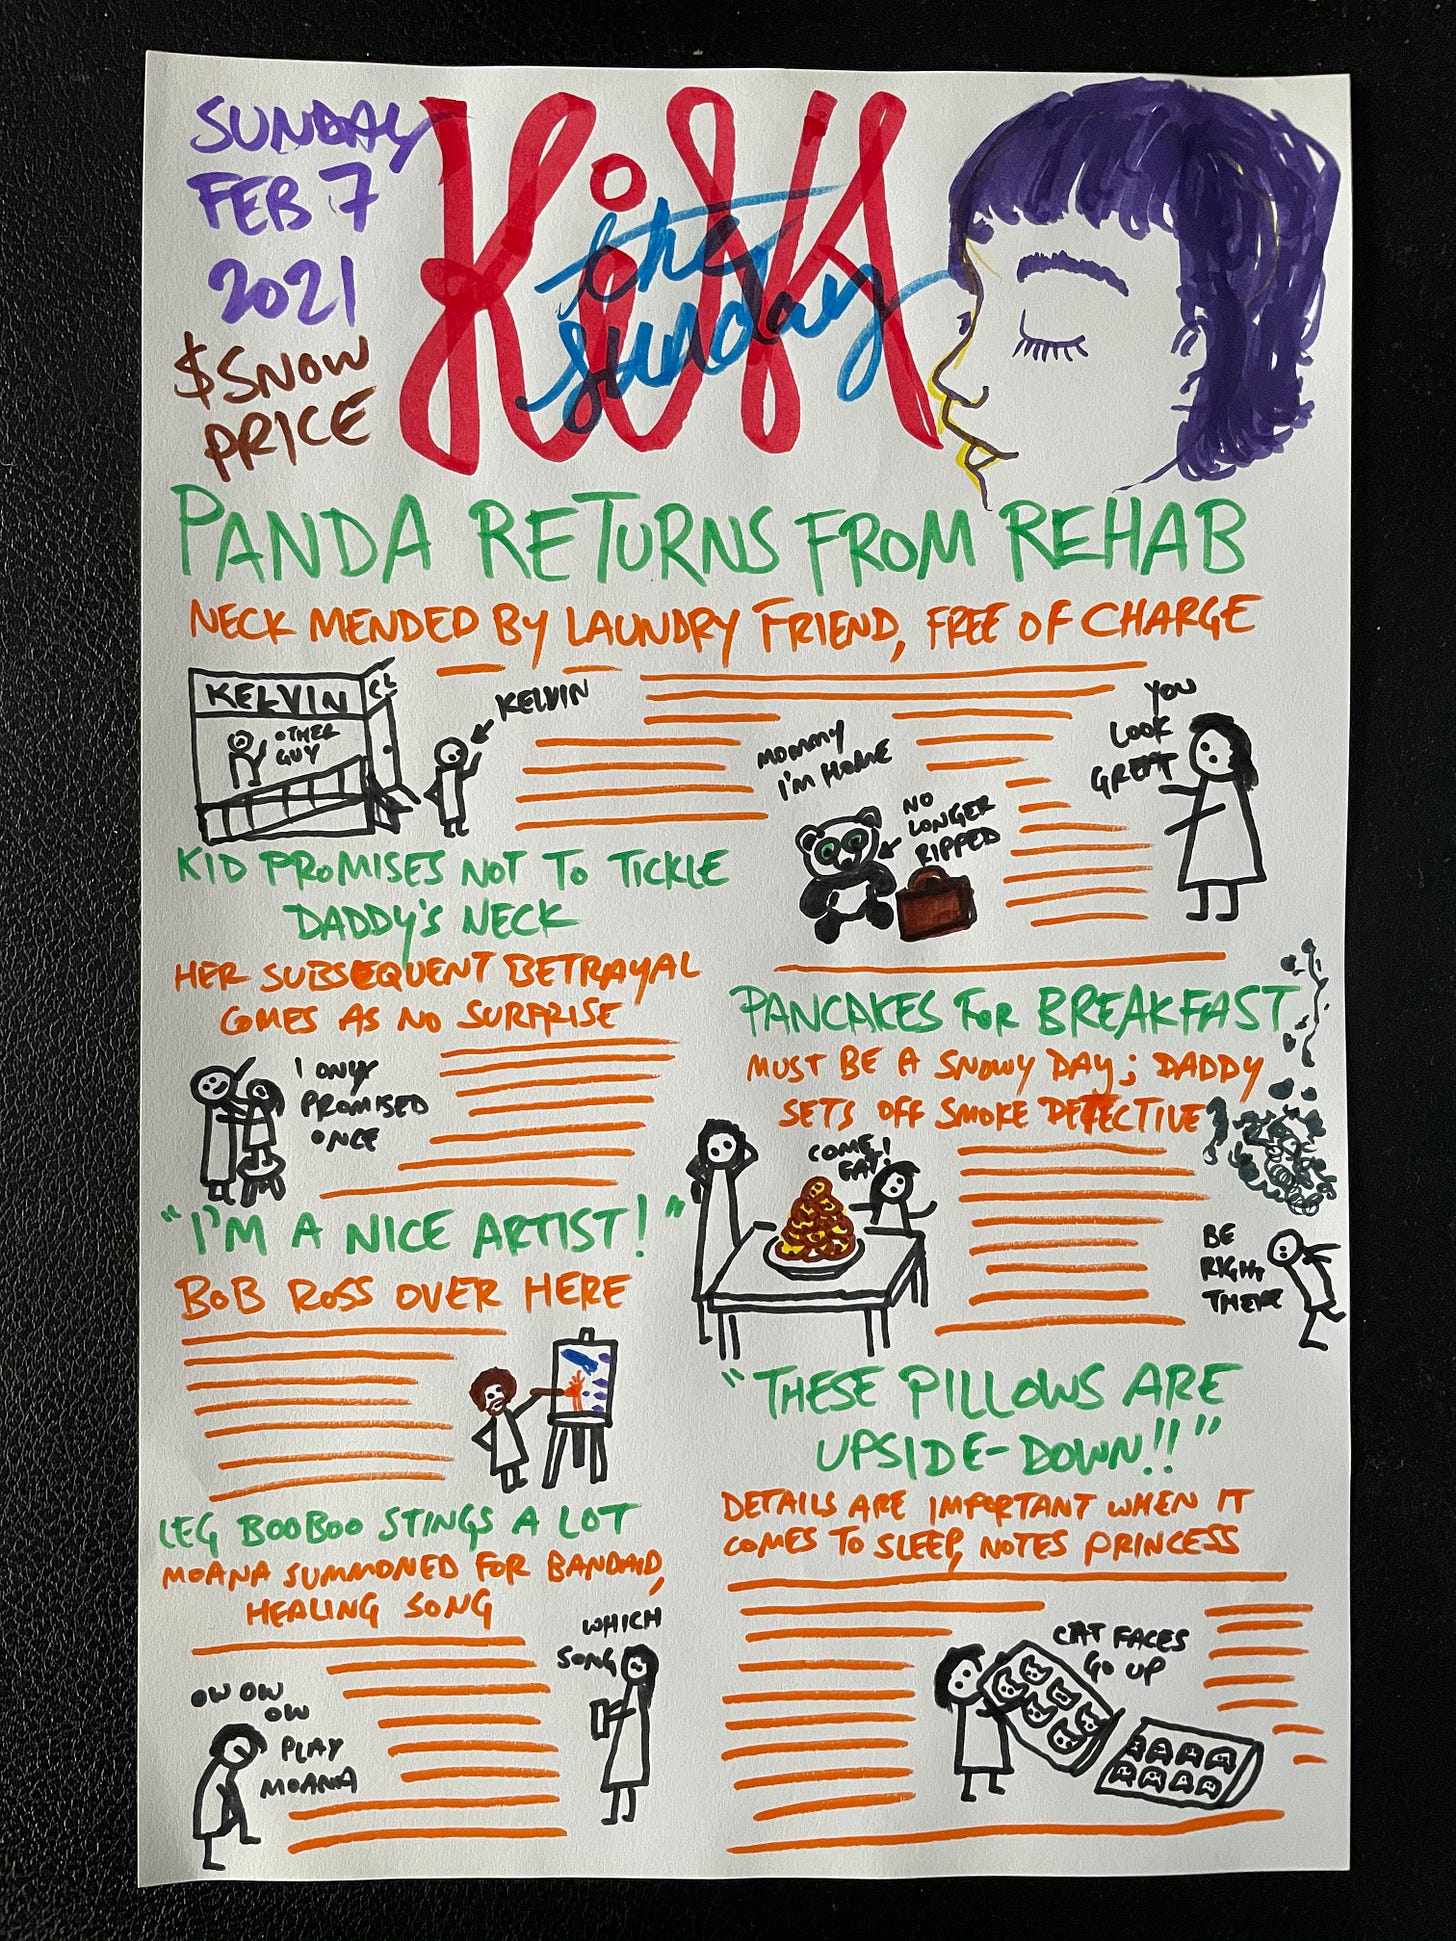 SUNDAY
FEB 7
2021
$SNOW
PRICE
Kiss
the
sunday
PANDA RETURNS FROM REHAB
NECK MENDED BY LAUNDRY FRIEND, FREE OF CHARGE
KELVIN
CL
OTHER
GUY
KELVIN
MOMMY
I'M HOME
NO
LONGER
RIPPED
YOU
LOOK
GREAT
KID PROMISES NOT TO TICKLE
DADDY'S NECK
HER SUBSEQUENT BETRAYAL
COMES AS NO SURPRISE
I ONLY
PROMISED
ONCE
PANCAKES FOR BREAKFAST
MUST BE A SNOWY DAY; DADDY
SETS OFF SMOKE DETECTIVE
COME
EAT!
BE
RIGHT
THERE
"I'M A NICE ARTIST!"
BOB ROSS OVER HERE
"THESE PILLOWS ARE
UPSIDE-DOWN!!"
DETAILS ARE IMPORTANT WHEN IT
COMES TO SLEEP, NOTES PRINCESS
CAT FACES
GO UP
LEG BOOBOO STINGS A LOT
MOANA SUMMONED FOR BANDAID,
HEALING SONG
OW OW
OW
PLAY
MOANA
WHICH
SONG